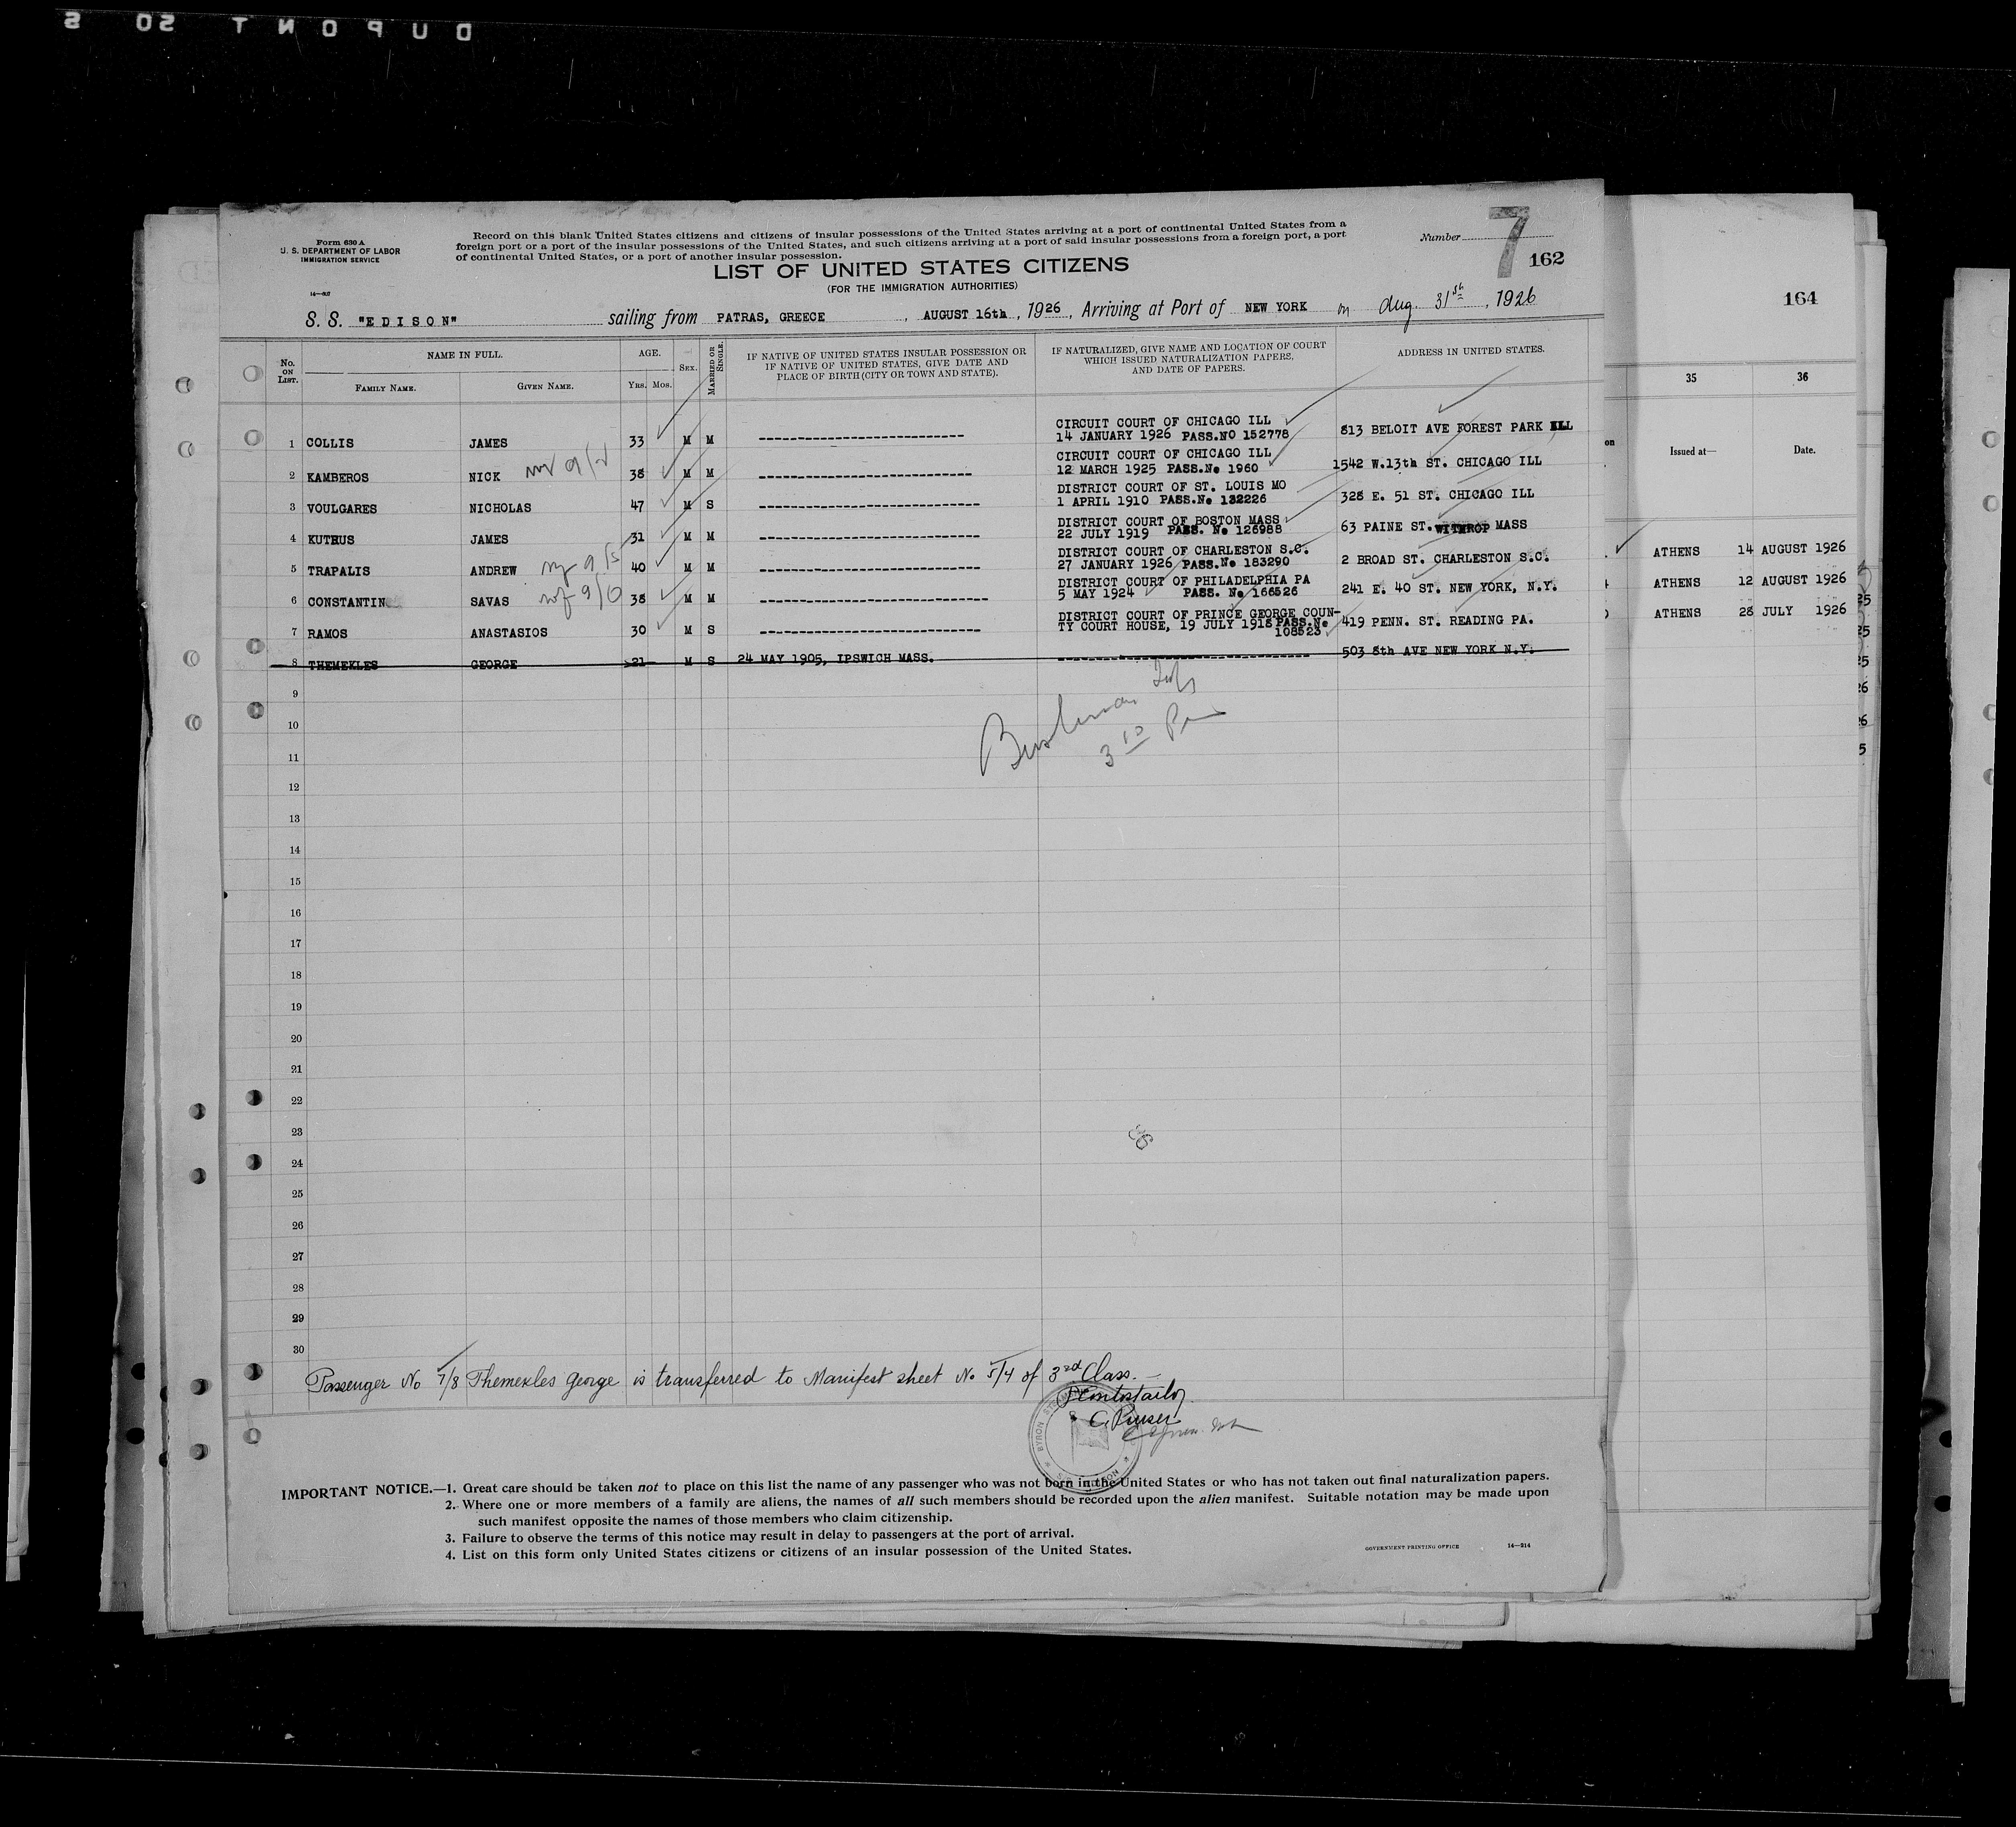 DUPONT SO S
Form 630 A
U. S. DEPARTMENT OF LABOR
IMMIGRATION SERVICE
Record on this blank United States citizens and citizens of insular possessions of the United States arriving at a port of continental United States from a
foreign port or a port of the insular possessions of the United States, and such citizens arriving at a port of said insular possessions from a foreign port, a port
of continental United States, or a port of another insular possession.
Number 7
162
LIST OF UNITED STATES CITIZENS
(FOR THE IMMIGRATION AUTHORITIES)
S. S. "EDISON" sailing from PATRAS, GREECE, AUGUST 16th, 1926, Arriving at Port of NEW YORK on Aug. 31st, 1926
No. ON LIST. NAME IN FULL. FAMILY NAME. GIVEN NAME. AGE. YRS. MOS. SEX. MARRIED OR SINGLE. IF NATIVE OF UNITED STATES INSULAR POSSESSION OR IF NATIVE OF UNITED STATES, GIVE DATE AND PLACE OF BIRTH (CITY OR TOWN AND STATE). IF NATURALIZED, GIVE NAME AND LOCATION OF COURT WHICH ISSUED NATURALIZATION PAPERS, AND DATE OF PAPERS. ADDRESS IN UNITED STATES.
CIRCUIT COURT OF CHICAGO ILL
1 COLLIS JAMES 33 M M 14 JANUARY 1926 PASS.NO 152778 813 BELOIT AVE FOREST PARK ILL
CIRCUIT COURT OF CHICAGO ILL
2 KAMBEROS NICK 38 M M 12 MARCH 1925 PASS.No 1960 1542 W.13th ST. CHICAGO ILL
DISTRICT COURT OF ST. LOUIS MO
3 VOULGARES NICHOLAS 47 M S 1 APRIL 1910 PASS.No 132226 328 E. 51 ST. CHICAGO ILL
DISTRICT COURT OF BOSTON MASS
4 KUTHUS JAMES 31 M M 22 JULY 1919 PASS. No 126988 63 PAINE ST. WITHROP MASS
DISTRICT COURT OF CHARLESTON S.C.
5 TRAPALIS ANDREW 40 M M 27 JANUARY 1926 PASS.No 183290 2 BROAD ST. CHARLESTON S.C.
DISTRICT COURT OF PHILADELPHIA PA
6 CONSTANTIN SAVAS 38 M M 5 MAY 1924 PASS. No 166526 241 E. 40 ST. NEW YORK, N.Y.
DISTRICT COURT OF PRINCE GEORGE COUN-
7 RAMOS ANASTASIOS 30 M S TY COURT HOUSE, 19 JULY 1918 PASS.No 108523 419 PENN. ST. READING PA.
8 THEMEKLES GEORGE 21 M S 24 MAY 1905, IPSWICH MASS. 503 8th AVE NEW YORK N.Y.
9
10
11
12
13
14
15
16
17
18
19
20
21
22
23
24
25
26
27
28
29
30
Passenger No 7/8 Themekles George is transferred to Manifest sheet No 5/4 of 3rd Class.
IMPORTANT NOTICE.—1. Great care should be taken not to place on this list the name of any passenger who was not born in the United States or who has not taken out final naturalization papers.
2. Where one or more members of a family are aliens, the names of all such members should be recorded upon the alien manifest. Suitable notation may be made upon
such manifest opposite the names of those members who claim citizenship.
3. Failure to observe the terms of this notice may result in delay to passengers at the port of arrival.
4. List on this form only United States citizens or citizens of an insular possession of the United States.
GOVERNMENT PRINTING OFFICE 14—214
164
35 36
Issued at— Date.
ATHENS 14 AUGUST 1926
ATHENS 12 AUGUST 1926
ATHENS 28 JULY 1926